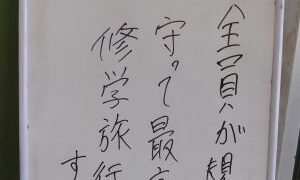 全員が規
守って最高
修学旅行
す